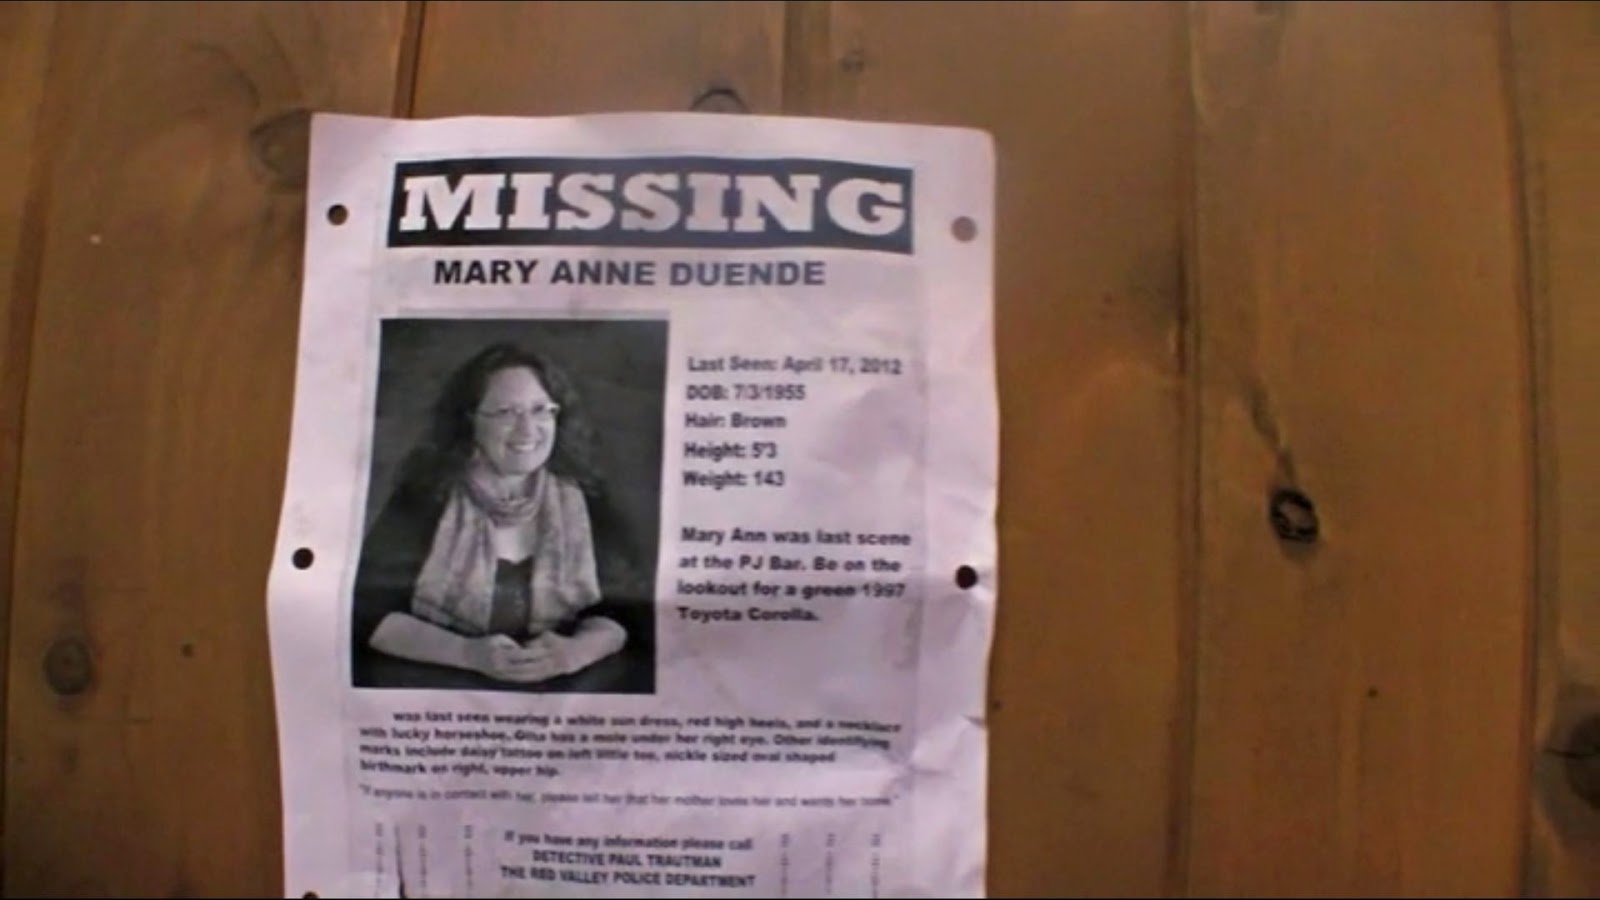 MISSING
MARY ANNE DUENDE
Last Seen: April 17, 2012
DOB: 7/3/1955
Hair: Brown
Height: 5'3
Weight: 143
Mary Ann was last scene
at the PJ Bar. Be on the
lookout for a green 1997
Toyota Corolla.
was last seen wearing a white sun dress, red high heels, and a necklace
with lucky horseshoe. Gina has a mole under her right eye. Other identifying
marks include daisy tattoo on left little toe, nickle sized oval shaped
birthmark on right, upper hip.
"If anyone is in contact with her, please tell her that her mother loves her and wants her home."
If you have any information please call
DETECTIVE PAUL TRAUTMAN
THE RED VALLEY POLICE DEPARTMENT